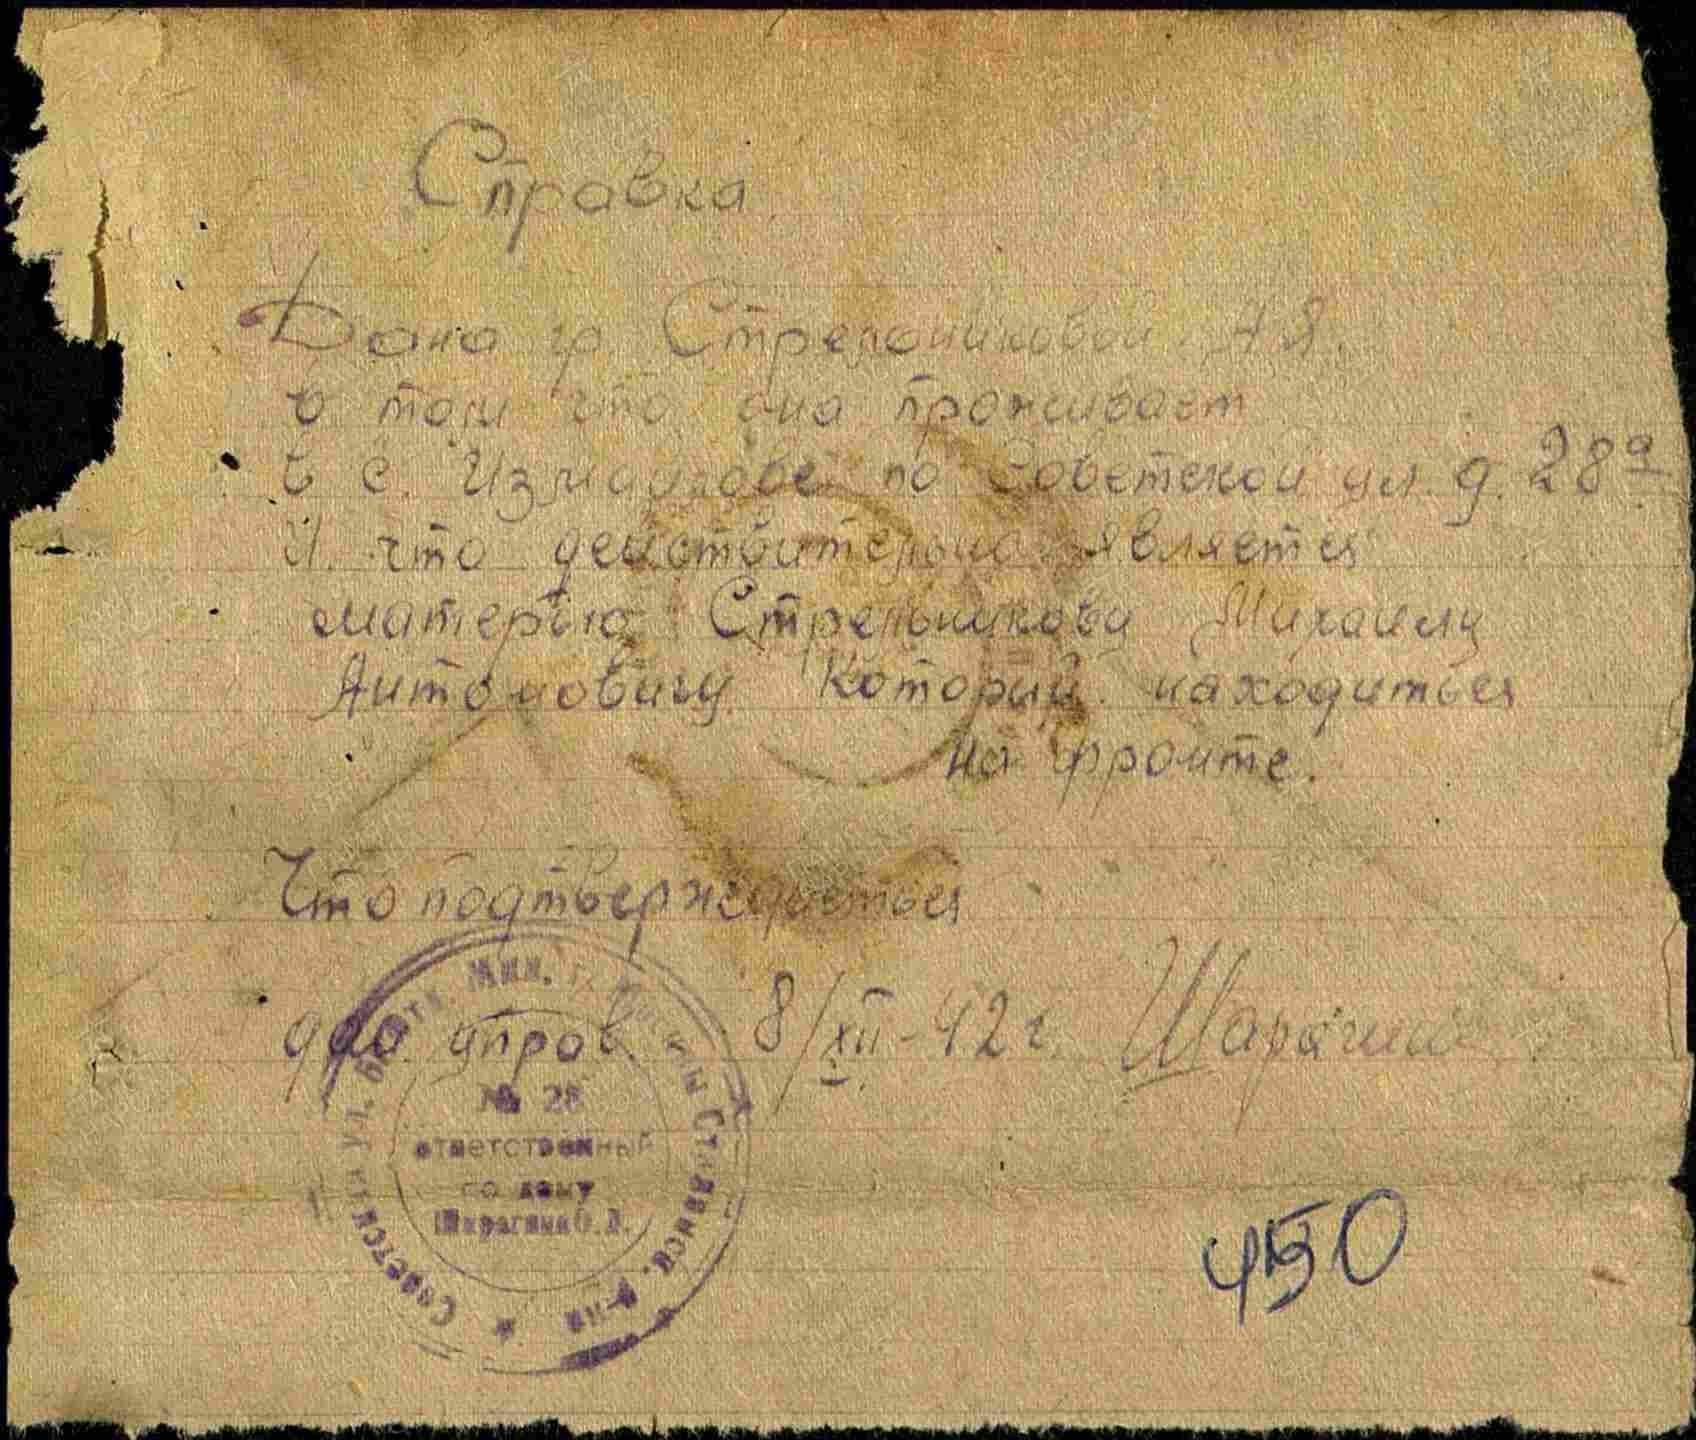 Справка
Дана гр. Стрельниковой А Я.
в том что она проживает
в с. Измайлове по Советской ул д. 28а
И что действительно является
матерью Стрельникову Михаилу
Антоновичу Который находиться
на фронте.
Что подтверждаеться
дом упров. 8/XII-42 г. Шарагина
Советской ул.
Сталинск. р-на
№ 28
ответственный
по дому
Шарагина
450